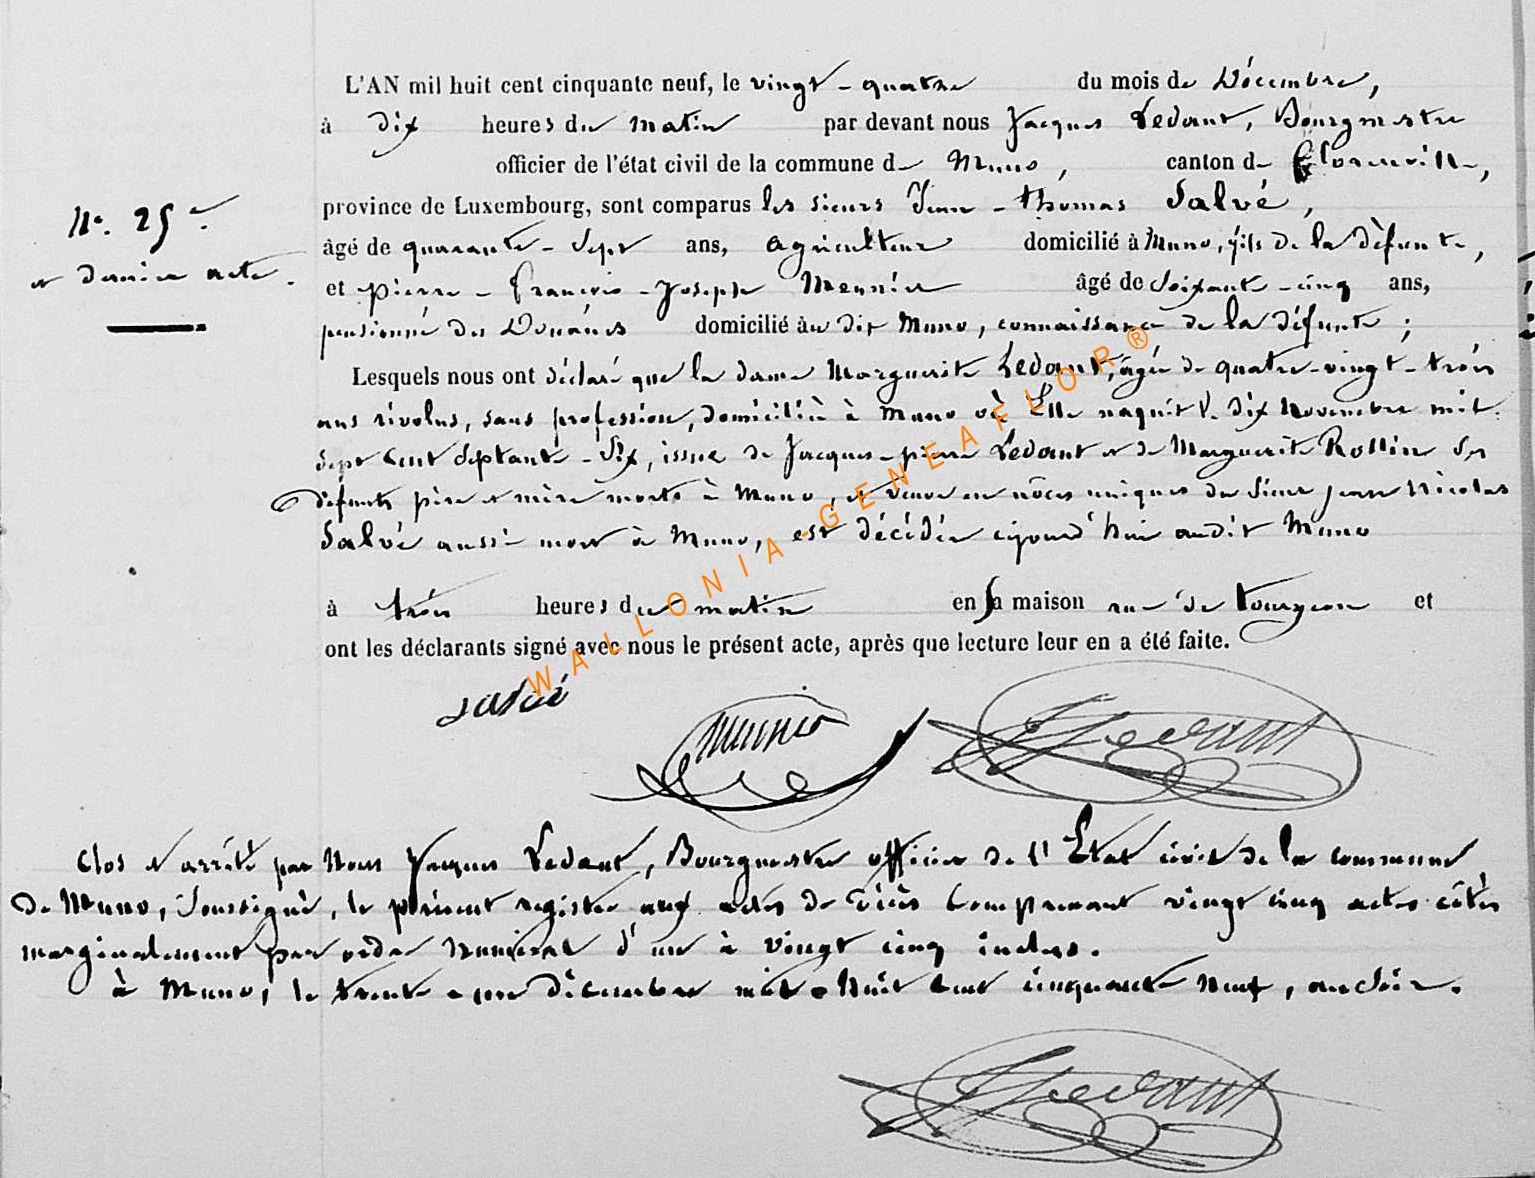 L'AN mil huit cent cinquante neuf, le vingt-quatre du mois de Décembre,
à dix heures du matin par devant nous Jacques Ledant, Bourgmestre
officier de l'état civil de la commune de Muno, canton de Florenville,
province de Luxembourg, sont comparus les sieurs Jean-Thomas Salvé,
N.° 25e
âgé de quarante-sept ans, agriculteur domicilié à Muno, fils de la défunte,
et dernier acte.
et Pierre-François-Joseph Meunier âgé de soixante-cinq ans,
pensionné des Douanes domicilié au dit Muno, connaissance de la défunte;
Lesquels nous ont déclaré que la dame Marguerite Ledant, âgée de quatre-vingt-trois
ans révolus, sans profession, domiciliée à Muno où Elle naquit le dix Novembre mil
sept cent septante-six, issue de Jacques-pierre Ledant et de Marguerite Rollin ses
défunts père et mère morts à Muno, et veuve en nôces uniques du sieur jean Nicolas
Salvé aussi mort à Muno, est décédée cejourd'hui audit Muno
à trois heures du matin en sa maison rue de tourgeon et
ont les déclarants signé avec nous le présent acte, après que lecture leur en a été faite.
Salvé
Meunier
JLedant
Clos et arrêté par Nous Jacques Ledant, Bourgmestre officier de l'Etat civil de la commune
de Muno, soussigné, le présent registre aux actes de décès comprenant vingt cinq actes cotés
marginalement par ordre Numéral d'un à vingt cinq inclus.
à Muno, le trente-un décembre mil-huit cent cinquante neuf, au soir.
JLedant
WALLONIA-GENEAFLOR®